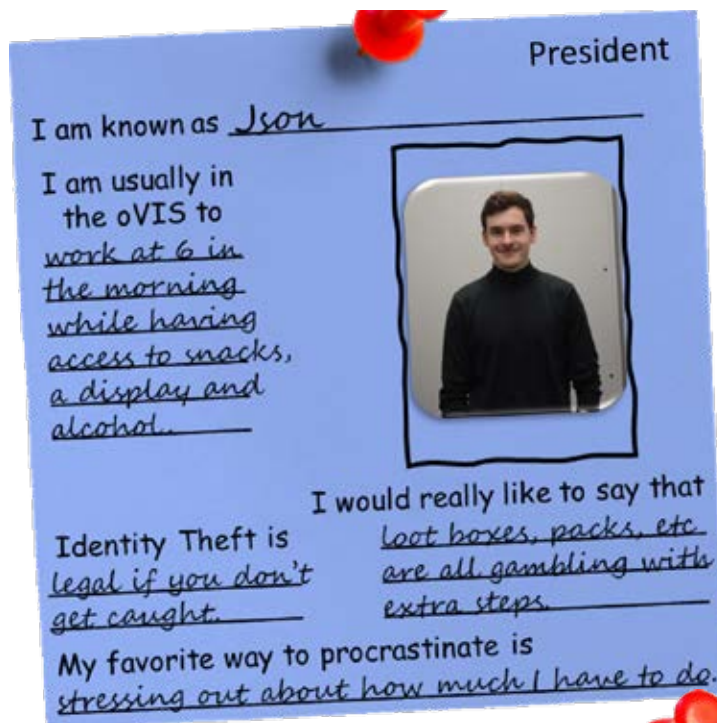 President
I am known as Json
I am usually in
the oVIS to
work at 6 in
the morning
while having
access to snacks,
a display and
alcohol..
I would really like to say that
loot boxes, packs, etc
are all gambling with
extra steps.
Identity Theft is
legal if you don't
get caught.
My favorite way to procrastinate is
stressing out about how much I have to do.